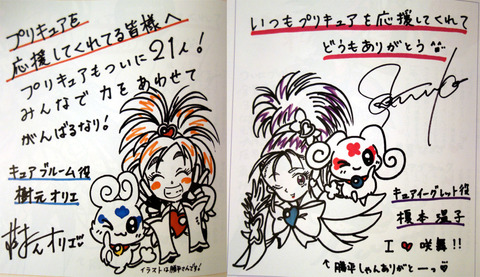 プリキュアを
応援してくれてる皆様へ
プリキュアもついに21人!
みんなで力をあわせて
がんばるなり!
キュアブルーム役
樹元オリエ
樹元オリエ
イラストは勝平さんです♪
いつもプリキュアを応援してくれて
どうもありがとう
キュアイーグレット役
榎本温子
I ♥ 咲舞!!
↑勝平しゃんありがとーっ♥